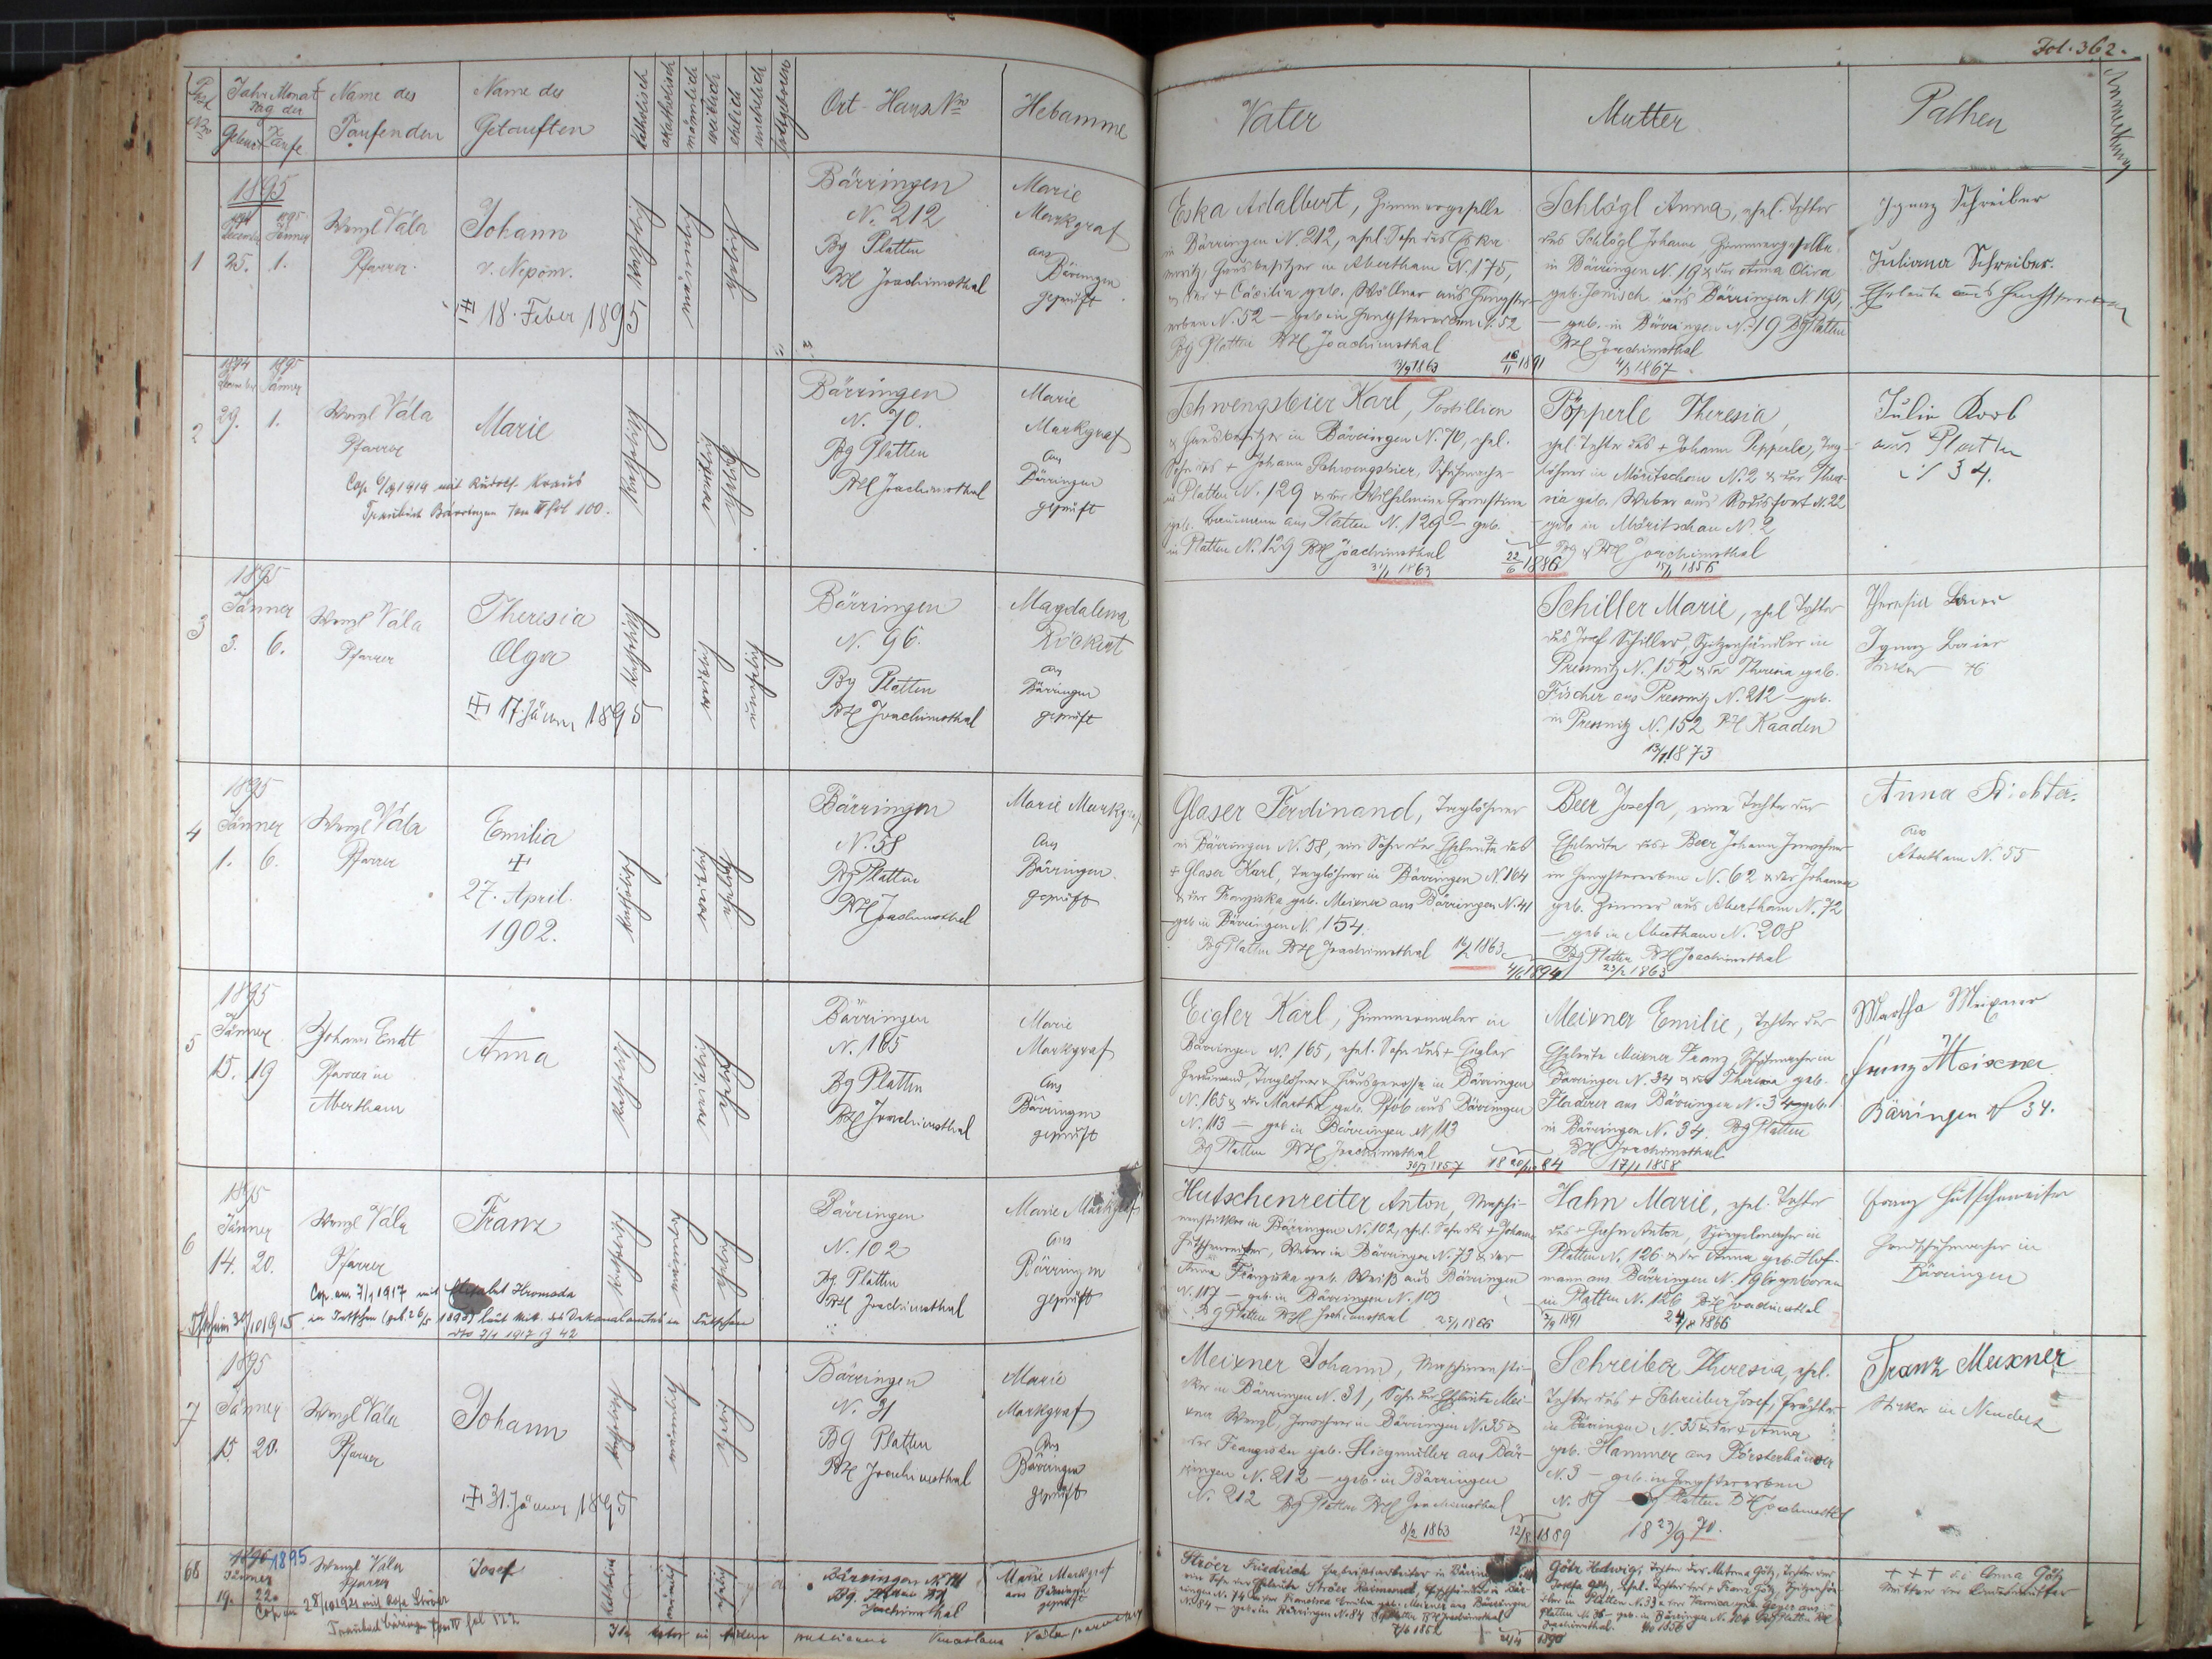 Fol. 362.
Jahr Monat
Tag der
Geburt Taufe
Name des
Taufenden
Name des
Getauften
katholisch
akatholisch
männlich
weiblich
ehelich
unehelich
Ort - Haus Nro
Hebamme
Vater
Mutter
Pathen
Anmerkung
1895
1894 1895
December Jänner
1 25. 1.
Wenzl Vála
Pfarrer.
Johann
v. Nepom.
18. Feber 1895
katholisch
männlich
ehelich
Bärringen
N. 212
Bg Platten
BH Joachimsthal
Marie
Markgraf
aus
Bärringen
geprüft
Eska Adalbert, Zimmergeselle
in Bärringen N. 212, ehel. Sohn des Eska
Hausbesitzer in Abertham N. 175,
u. der + Cäcilia geb. Wöllner aus Hengster-
erben N. 52 – geb. in Hengstererben N. 52
Bg Platten BH Joachimsthal
1863
1891
Schlögl Anna, ehel. Tochter
des Schlögl Johann, Zimmergeselle
in Bärringen N. 19 & der Anna
geb. Jenisch aus Bärringen N. 195,
– geb. in Bärringen N. 19 Bg Platten
BH Joachimsthal
1867
Ignaz Schreiber
Juliana Schreiber.
Eheleute aus Hengstererben
1894 1895
December Jänner
2 29. 1.
Wenzl Vála
Pfarrer
Marie
Cop. 6/9 1919 mit Rudolf Kraus
Traubuch Bärringen Tom III fol 100.
katholisch
weiblich
ehelich
Bärringen
N. 70.
Bg Platten
BH Joachimsthal
Marie
Markgraf
aus
Bärringen
geprüft
Schwengsbier Karl, Postillion
& Hausbesitzer in Bärringen N. 70, ehel.
Sohn des + Johann Schwengsbier, Schuhmacher
in Platten N. 129 & der Wilhelmine Ernestine
geb. Baumann aus Platten N. 129 – geb.
in Platten N. 129 BH Joachimsthal
1863
22/6 1886
Pöpperle Theresia,
ehel. Tochter des + Johann Pöpperle, Tag-
löhner in Möritschau N. 2 & der
geb. Weber aus Rodisfort N. 22
– geb. in Möritschau N. 2
Bg & BH Joachimsthal
1856
Julie Korb
aus Platten
34.
1895
Jänner
3 3. 6.
Wenzl Vála
Pfarrer
Theresia
Olga
17. Jänner 1895
katholisch
weiblich
unehelich
Bärringen
N. 96.
Bg Platten
BH Joachimsthal
Magdalena
Röckert
aus
Bärringen
geprüft
Schiller Marie, ehel. Tochter
des Josef Schiller, Spitzenhändler in
Pressnitz N. 152 & der Theresia geb.
Fischer aus Pressnitz N. 212 – geb.
in Pressnitz N. 152 BH Kaaden
1873
Theresia Baier
Ignaz Baier
1895
Jänner
4 1. 6.
Wenzl Vála
Pfarrer
Emilia
+
27. April.
1902.
katholisch
weiblich
ehelich
Bärringen
N. 58
Bg Platten
BH Joachimsthal
Marie Markgraf
aus
Bärringen.
geprüft
Glaser Ferdinand, Taglöhner
in Bärringen N. 58, ein Sohn der Eheleute des
+ Glaser Karl, Taglöhner in Bärringen N. 164
& der Franziska geb. Meixner aus Bärringen N. 41
– geb. in Bärringen N. 154.
Bg Platten BH Joachimsthal 1863
1894
Beer Josefa, eine Tochter der
Eheleute des + Beer Johann
in Hengstererben N. 62 & der Johanna
geb. Zenner aus Abertham N. 72
– geb. in Abertham N. 208
Bg Platten BH Joachimsthal
1863
Anna Richter.
aus
Abertham N. 55
1895
Jänner
5 15. 19
Johann Endt
Pfarrer in
Abertham
Anna
katholisch
weiblich
ehelich
Bärringen
N. 165
Bg Platten
BH Joachimsthal
Marie
Markgraf
aus
Bärringen
geprüft
Eigler Karl, Zimmermaler in
Bärringen N. 165, ehel. Sohn des + Eigler
Ferdinand, Taglöhner & Hausgenosse in Bärringen
N. 165 & der Martha geb. Pfob aus Bärringen
N. 113 – geb. in Bärringen N. 113
Bg Platten BH Joachimsthal
1857
Meixner Emilie, Tochter der
Eheleute Meixner Franz, Schuhmacher in
Bärringen N. 34 & der Theresia geb.
Fladerer aus Bärringen N. 34 – geb.
in Bärringen N. 34. Bg Platten
BH Joachimsthal
17/1 1858
Martha Meixner
Franz Meixner
Bärringen N 34.
1895
Jänner
6 14. 20.
Wenzl Vála
Pfarrer
Franz
Cop. am 7/1 1917 mit Elisabet Hromada
in Tetschen (geb. 26/5 1895) laut Mit. des Dekanalamtes in Tetschen
dto 7/1 1917 Z 42
katholisch
männlich
ehelich
Bärringen
N. 102
Bg. Platten
BH Joachimsthal
Marie Markgraf
aus
Bärringen
geprüft
Hutschenreiter Anton, Maschi-
nensticker in Bärringen N. 102, ehel. Sohn des + Johann
Hutschenreiter, Weber in Bärringen N. 73 & der
Anna Franziska geb. Weiß aus Bärringen
N. 117 – geb. in Bärringen N. 103
Bg Platten BH Joachimsthal 1866
Hahn Marie, ehel. Tochter
des + Hahn Anton, Spiegelmacher in
Platten N. 126 & der Anna geb. Hof-
mann aus Bärringen N. 196 geboren
in Platten N. 126 BH Joachimsthal
1891
1866
Franz Hutschenreiter
Handschuhmacher in
Bärringen
1895
Jänner
7 15. 20.
Wenzl Vála
Pfarrer
Johann
31. Jänner 1895
katholisch
männlich
ehelich
Bärringen
N. 31
Bg Platten
BH Joachimsthal
Marie
Markgraf
aus
Bärringen
geprüft
Meixner Johann, Maschinensti-
cker in Bärringen N. 31, Sohn der Eheleute Mei-
xner Wenzl, in Bärringen N. 35 &
der Franziska geb. Stiegmüller aus Bär-
ringen N. 212 – geb. in Bärringen
N. 212 Bg Platten BH Joachimsthal
8/2 1863
12/8 1889
Schreiber Theresia, ehel.
Tochter des + Schreiber Josef, Frächter
in Bärringen N. 35 & der + Anna
geb. Hammer aus Försterhäuser
N. 3 – geb. in Hengstererben
N. 89 – Bg Platten BH Joachimsthal
18 23/9 70.
Franz Meixner
Sticker in Neudek
68
1895
Jänner
19. 22.
Wenzl Vála
Pfarrer
Josef
Cop. am 28/10 1921 mit Rosa Ströer
Traubuch Bärringen Tom III fol 122
katholisch
männlich
ehelich
Bärringen N. 74
Bg. Platten BH
Joachimsthal
Marie Markgraf
aus Bärringen
geprüft
Ströer Friedrich Fabriksarbeiter in Bärringen
ein Sohn der Eheleute Ströer Raimund, in Bär-
ringen N. 74 & der Francisca Emilia geb. Meixner aus Bärringen
N. 84 – geb. in Bärringen N. 84 Bg Platten BH Joachimsthal
1852
1890
Götz Hedwig, Tochter der Antonia Götz, Tochter der
Josefa Götz, ehel. Tochter des + Franz Götz, Spitzenhän-
dler in Platten N. 33 & der Veronica geb. Geyer aus
Platten N. 36 – geb. in Bärringen Bg Platten BH
Joachimsthal. 1856
+++ Anna Götz
Mutter der Kindesmutter